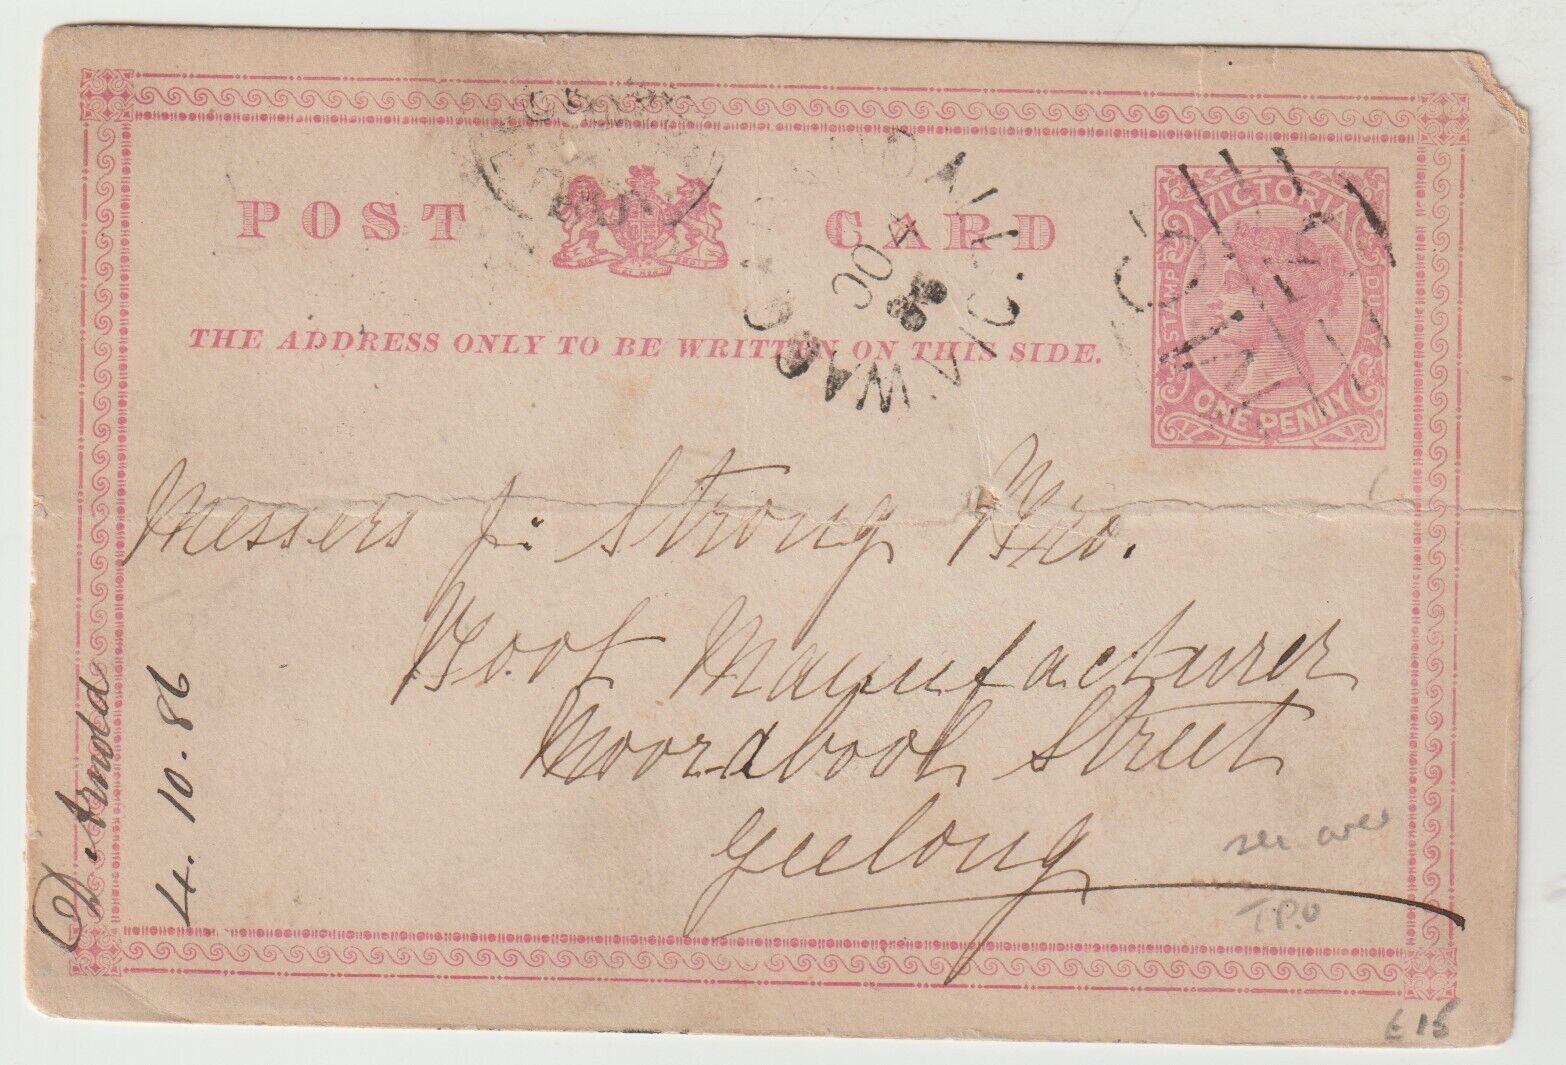 POST CARD
THE ADDRESS ONLY TO BE WRITTEN ON THIS SIDE.
VICTORIA
STAMP DUTY
ONE PENNY
OC 4
86
VIC.
Messers J. Strong Bro.
Boot Manufacturer
Moorabool Street
Geelong
D. Arnold
4. 10. 86
see over
T.P.O
£15